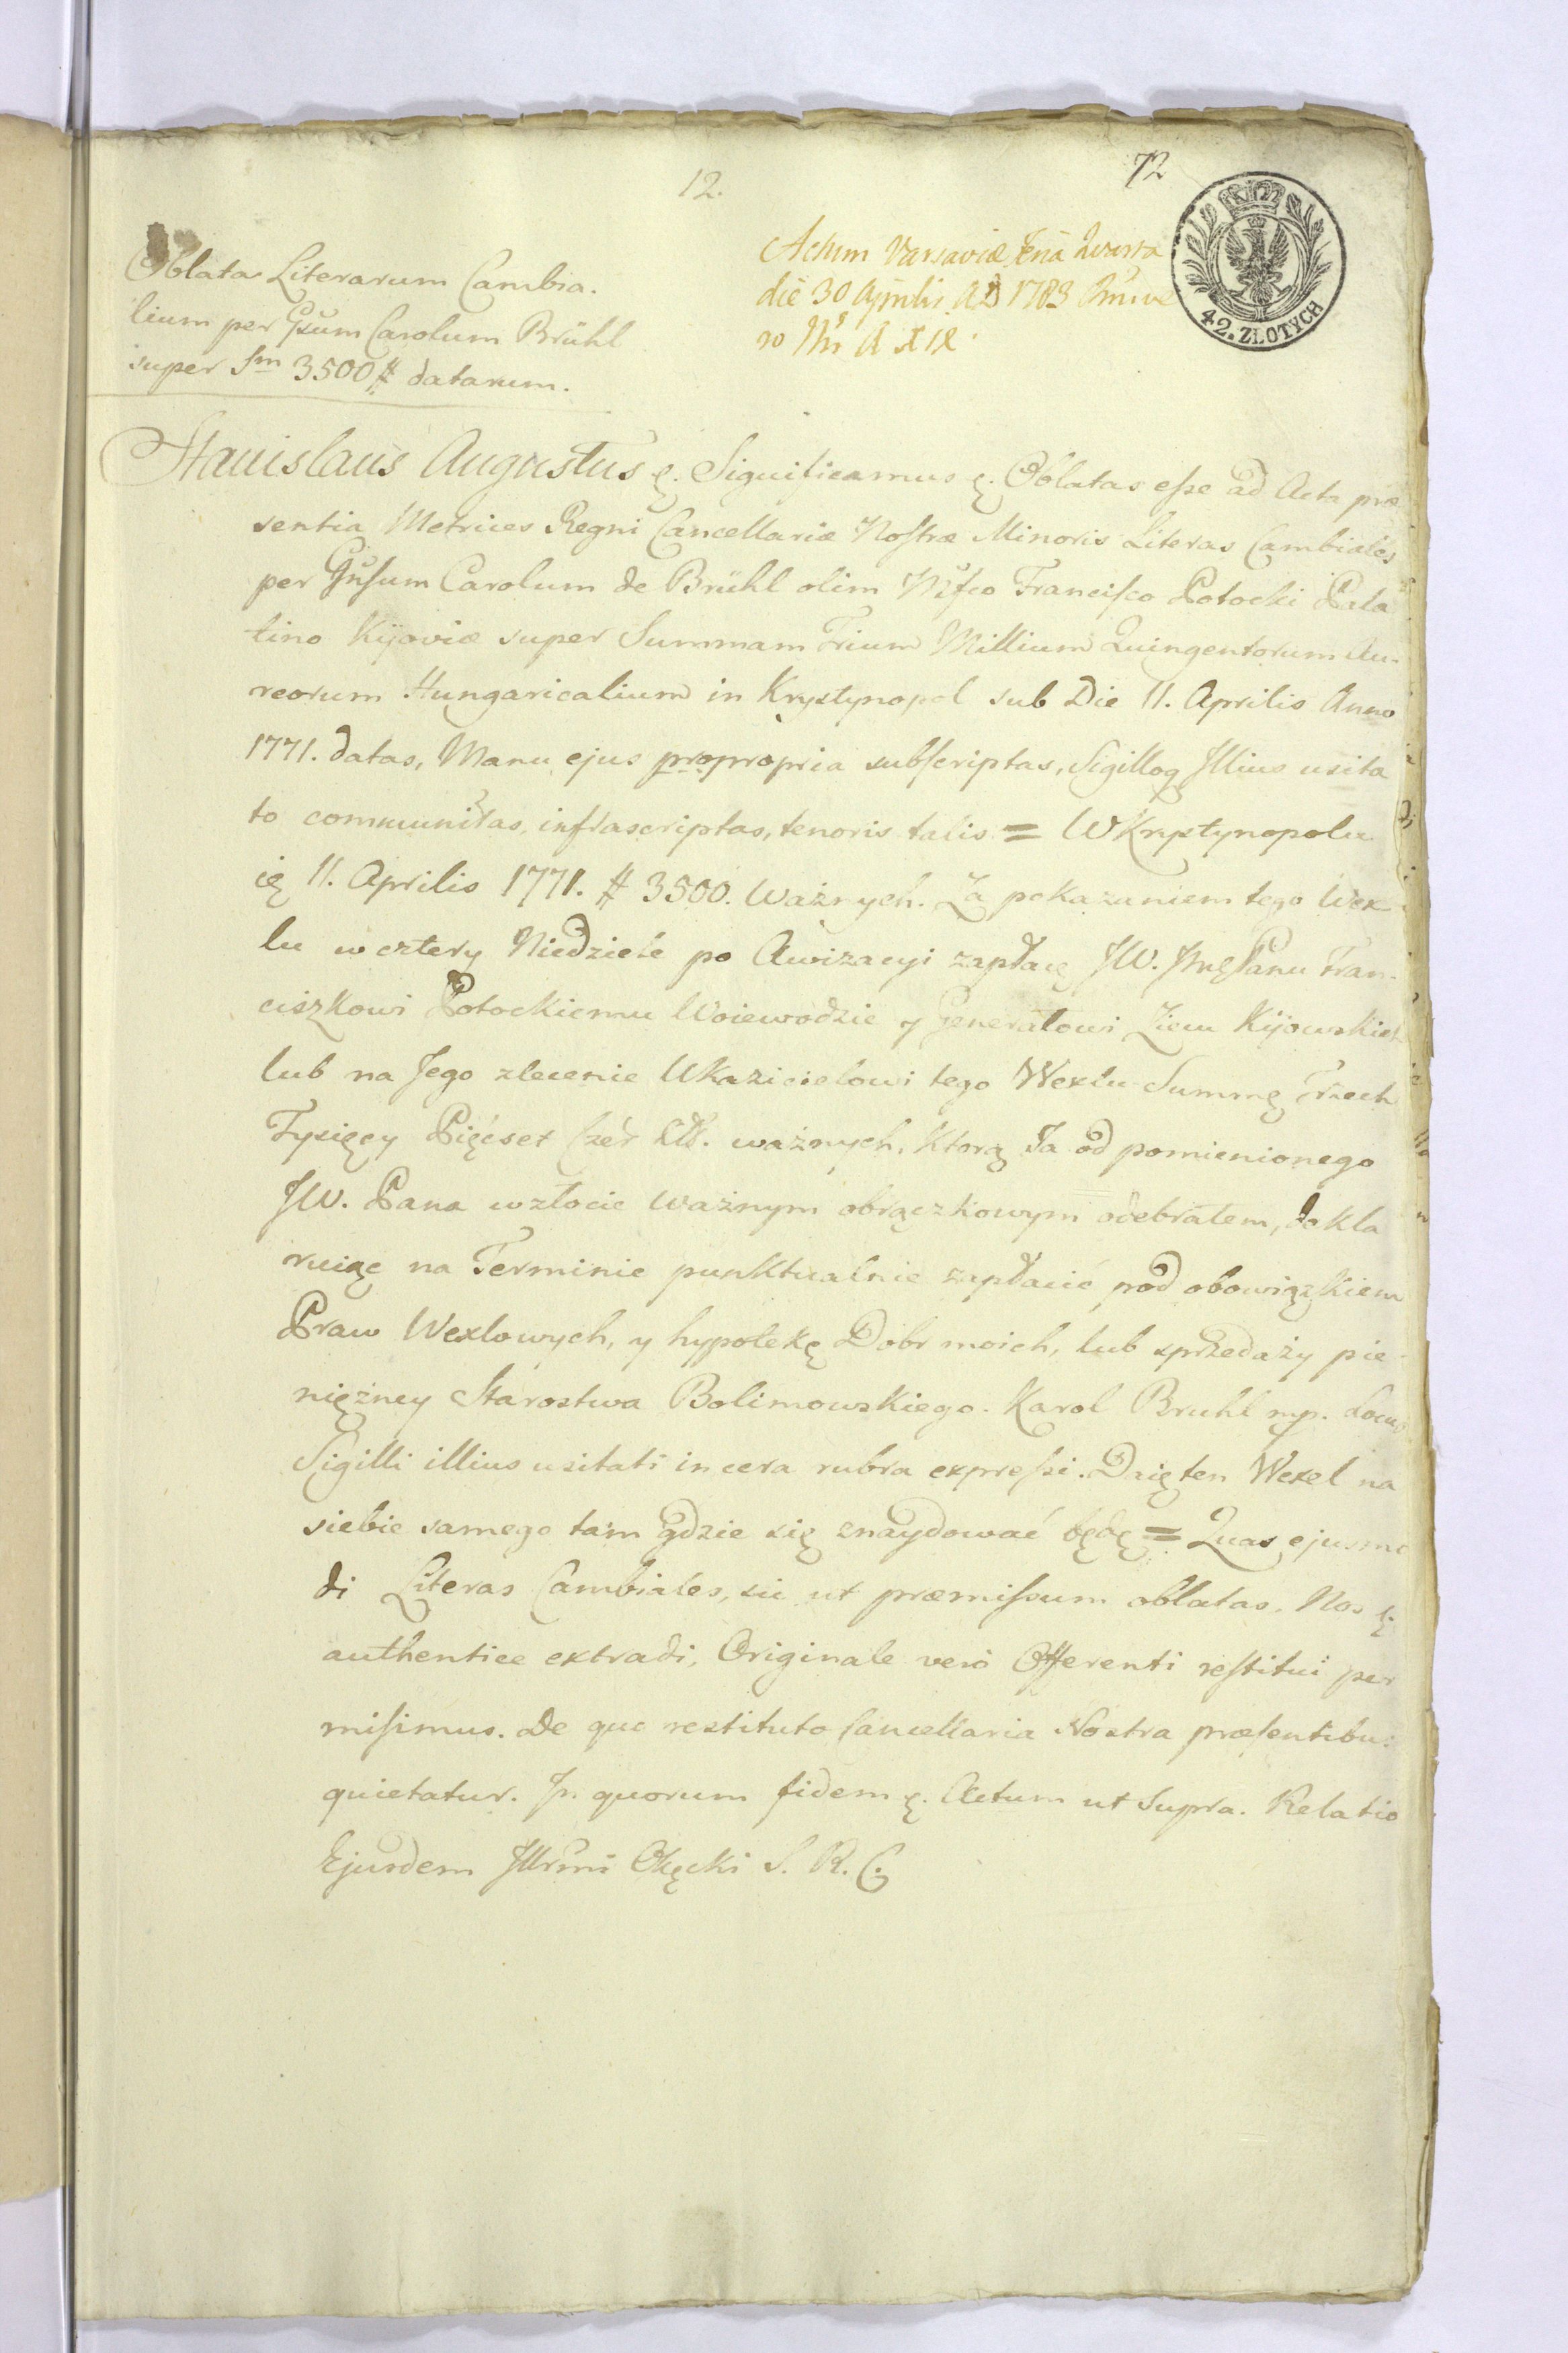 72
12.
42. ZŁOTYCH
Actum Varsaviæ Feria Quarta
die 30 Aprilis AD 1783
Oblata Literarum Cambia.
lium per Gsum Carolum Brühl
super Sm 3500 # datarum.
Stanislaus Augustus &. Significamus &. Oblatas eſse ad Acta præ
sentia Metrices Regni Cancellariæ Noſtræ Minoris Literas Cambiales
per Gnſum Carolum de Brühl olim Mfco Franciſco Potocki Pala
tino Kijoviæ super Summam Trium Millium Quingentorum Au-
reorum Hungaricalium in Krystynopol sub Die 11. Aprilis Anno
1771. datas, Manu ejus propropria subſcriptas, Sigilloq Illius usita
to communitas, infrascriptas, tenoris talis = W Krystynopolu
ię 11. Aprilis 1771. # 3500. Ważnych. Za pokazaniem tego Wex
lu w cztery Niedziele po Awizacyi zapłacę JW. Panu Fran-
ciszkowi Potockiemu Woiewodzie y Generałowi Ziem Kijowskich
lub na Jego zlecenie Ukazicielowi tego Wexlu Summę Trzech
Tysięcy Pięćset Czer Złł. ważnych, Ktorą Ja od pomienionego
JW. Pana w złocie ważnym obrączkowym odebrałem, dekla
ruiąc na Terminie punktualnie zapłacić pod obowiązkiem
Praw Wexlowych, y hypotekę Dobr moich, lub sprzedaży pie-
niężney Starostwa Bolimowskiego. Karol Bruhl mp. Locus
Sigilli illius usitati in cera rubra expreſsi. Daię ten Wexel na
siebie samego tam gdzie się znaydować będę = Quas ejusmo
di Literas Cambiales, sic ut præmiſsum oblatas. Nos &
authentice extradi, Originale verò Offerenti reſtitui per
miſimus. De quo restituto Cancellaria Nostra præſentibus
quietatur. In quorum fidem &. Actum ut Supra. Relatio
Ejusdem Illrmi Okęcki S. R. C.